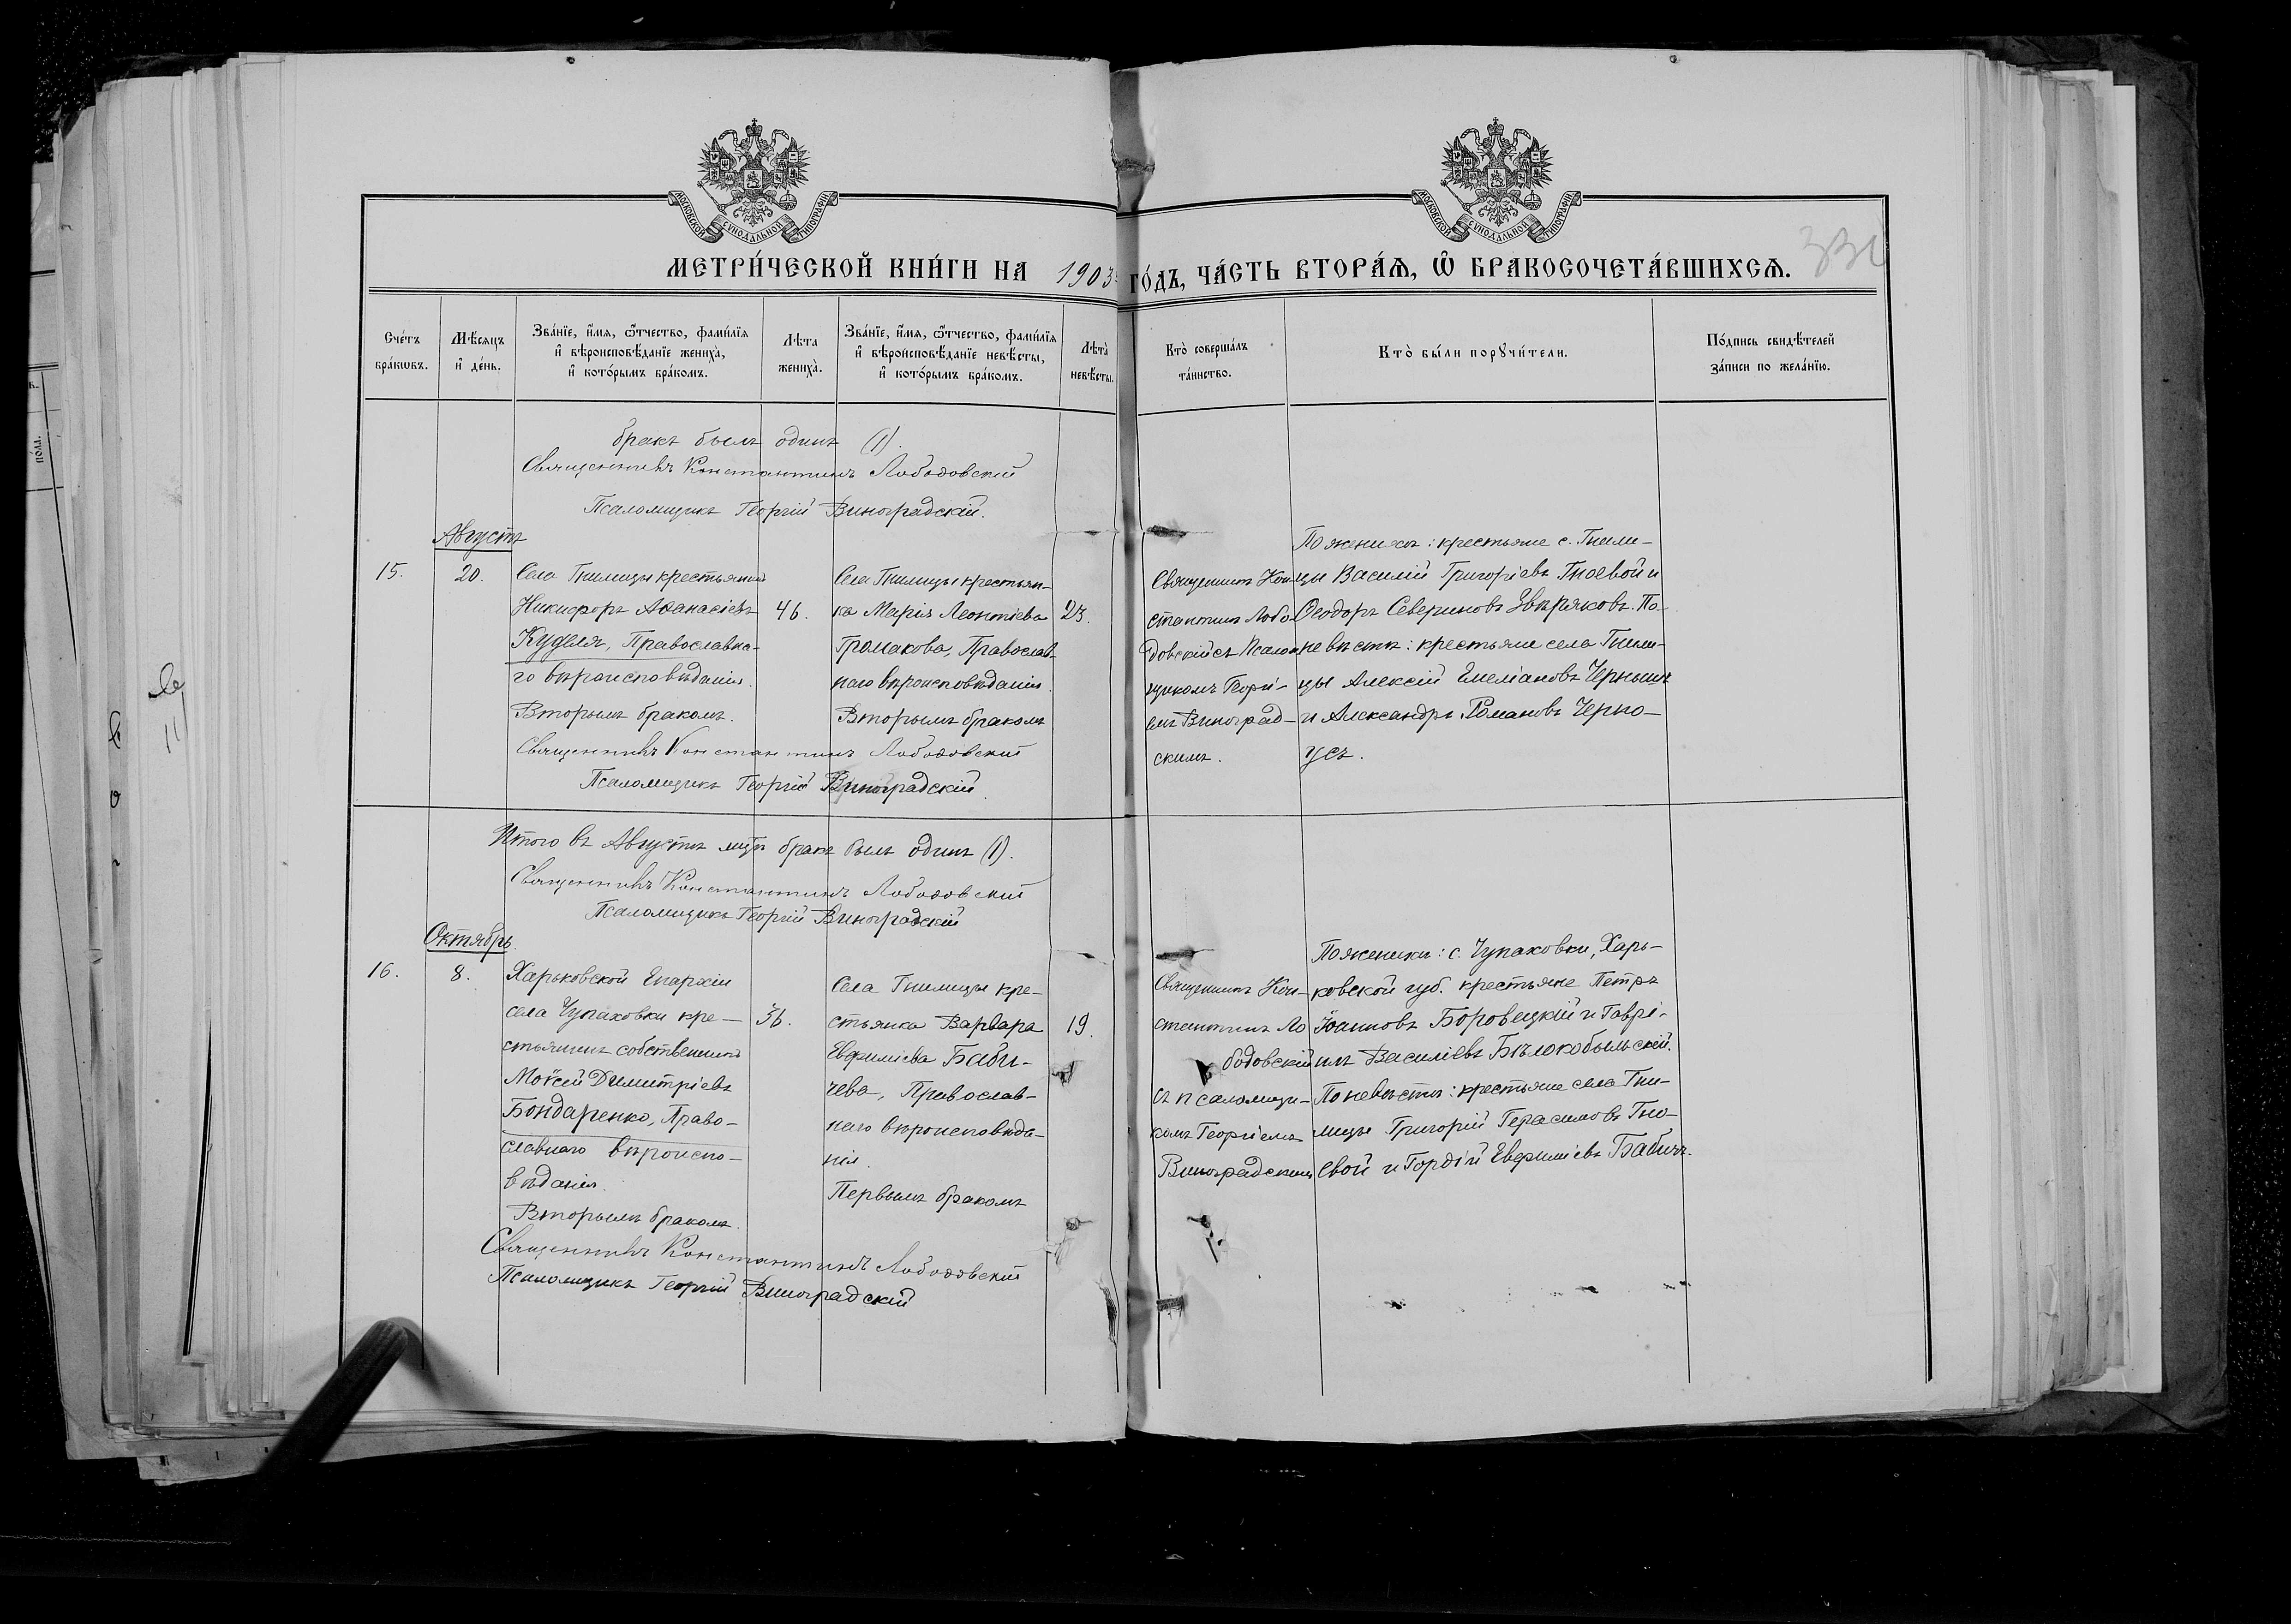 МОСКОВСКОЙ СѴНОДАЛЬНОЙ ТИПОГРАФІИ
МОСКОВСКОЙ СѴНОДАЛЬНОЙ ТИПОГРАФІИ
МЕТРИ́ЧЕСКОЙ КНИ́ГИ НА 1903 ГО́ДЪ, ЧА́СТЬ ВТОРА́Ѧ, Ѡ҆ БРАКОСОЧЕТА́ВШИХСѦ.
Сче́тъ бра́кѡвъ.
Мѣ́сѧцъ и҆ де́нь.
Зва́нїе, и҆́мѧ, ѻ҆́тчество, фами́лїѧ
и҆ вѣроисповѣ́данїе жениха̀,
и҆ кото́рымъ бра́комъ.
Лѣ́та жениха̀.
Зва́нїе, и҆́мѧ, ѻ҆́тчество, фами́лїѧ
и҆ вѣроисповѣ́данїе невѣ́сты,
и҆ кото́рымъ бра́комъ.
Лѣ́та невѣ́сты.
Кто̀ соверша́лъ та́инство.
Кто̀ бы́ли порꙋчи́тели.
По́дпись свидѣ́телей
за́писи по жела́нїю.
бракъ былъ одинъ (1).
Священникъ Константинъ Лободовскій
Псаломщикъ Георгій Виноградскій.
Августъ
15.
20.
Села Гнилицы крестьянинъ
Никифоръ Аѳанасіевъ
Кудря, Православна-
го вѣроисповѣданія.
Вторымъ бракомъ.
46.
Села Гнилицы крестьян-
ка Марія Леонтіева
Громакова, Православ-
наго вѣроисповѣданія.
Вторымъ бракомъ
23.
Священникъ Кон-
стантинъ Лобо-
довскій съ Псалом-
щикомъ Георгі-
емъ Виноград-
скимъ.
По женихѣ: крестьяне с. Гнили-
цы Василій Григоріевъ Гноевой и
Ѳеодоръ Севериновъ Звѣряковъ. По
невѣстѣ: крестьяне села Гнили-
цы Алексій Емеліановъ Чернышъ
и Александръ Романовъ Черно-
усъ.
Священникъ Константинъ Лободовскій
Псаломщикъ Георгій Виноградскій.
Итого въ Августѣ мцѣ бракъ былъ одинъ (1).
Священникъ Константинъ Лободовскій
Псаломщикъ Георгій Виноградскій
Октябрь.
16.
8.
Харьковской Епархіи
села Чупаховки кре-
стьянинъ собственникъ
Моѵсей Димитріевъ
Бондаренко, Право-
славнаго вѣроиспо-
вѣданія.
Вторымъ бракомъ.
36.
Села Гнилицы кре-
стьянка Варвара
Евфиміева Баби-
чева, Православ-
наго вѣроисповѣда-
нія.
Первымъ бракомъ
19.
Священникъ Кон-
стантинъ Ло
бодовскій
съ псаломщи-
комъ Георгіемъ
Виноградскимъ
По женихѣ: с. Чупаховки, Харь-
ковской губ. крестьяне Петръ
Іоанновъ Боровецкій и Гаврі-
илъ Василіевъ Бѣлокобыльскій.
По невѣстѣ: крестьяне села Гни-
лицы Григорій Герасимовъ Гно-
евой и Гордій Евфиміевъ Бабичъ.
Священникъ Константинъ Лободовскій
Псаломщикъ Георгій Виноградскій